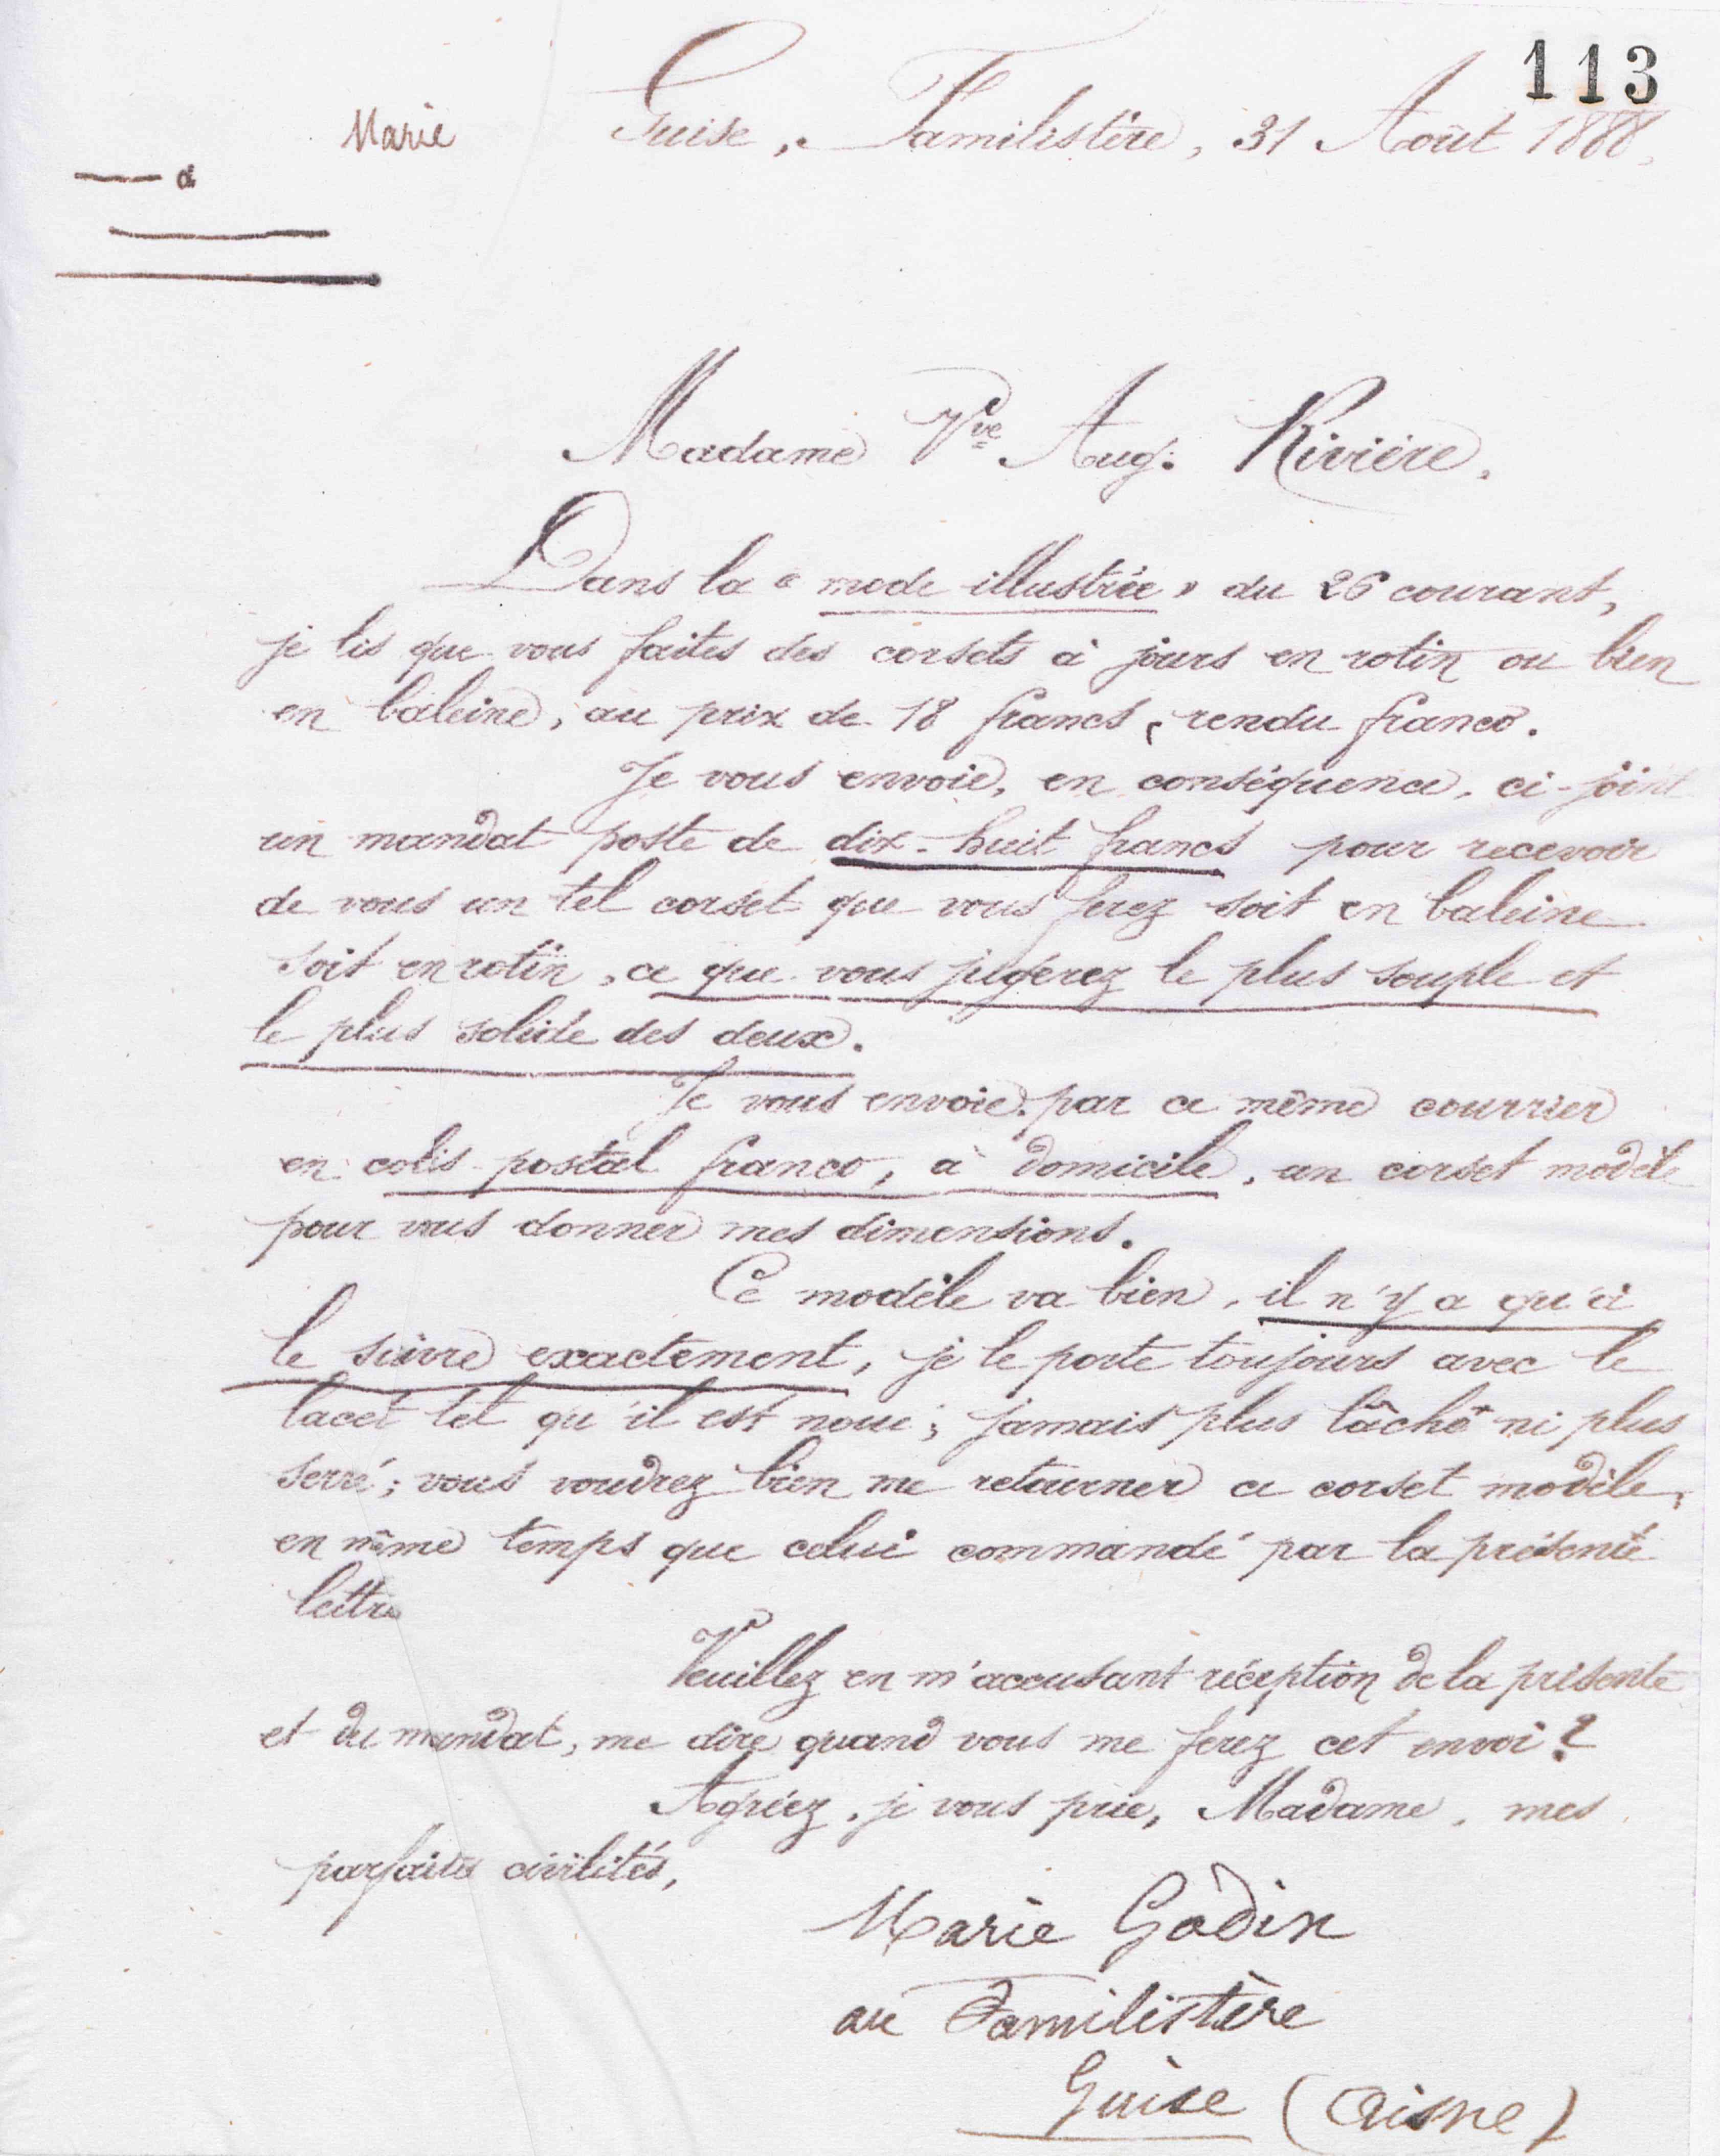 113
Marie
Guise, Familistère, 31 Août 1888,
à
Madame Vve Aug. Rivière,
Dans la « mode illustrée » du 26 courant,
je lis que vous faites des corsets à jours en rotin ou bien
en baleine, au prix de 18 francs, rendu franco.
Je vous envoie, en conséquence, ci-joint
un mandat poste de dix-huit francs pour recevoir
de vous un tel corset que vous ferez soit en baleine
soit en rotin, ce que vous jugerez le plus souple et
le plus solide des deux.
Je vous envoie par ce même courrier
en colis-postal franco, à domicile, un corset modèle
pour vous donner mes dimensions.
Ce modèle va bien, il n'y a qu'à
le suivre exactement, je le porte toujours avec le
lacet tel qu'il est noué; jamais plus lâché ni plus
serré; vous voudrez bien me retourner ce corset modèle,
en même temps que celui commandé par la présente
lettre
Veuillez en m'accusant réception de la présente
et du mandat, me dire quand vous me ferez cet envoi?
Agréez, je vous prie, Madame, mes
parfaites civilités,
Marie Godin
au Familistère
Guise (Aisne)